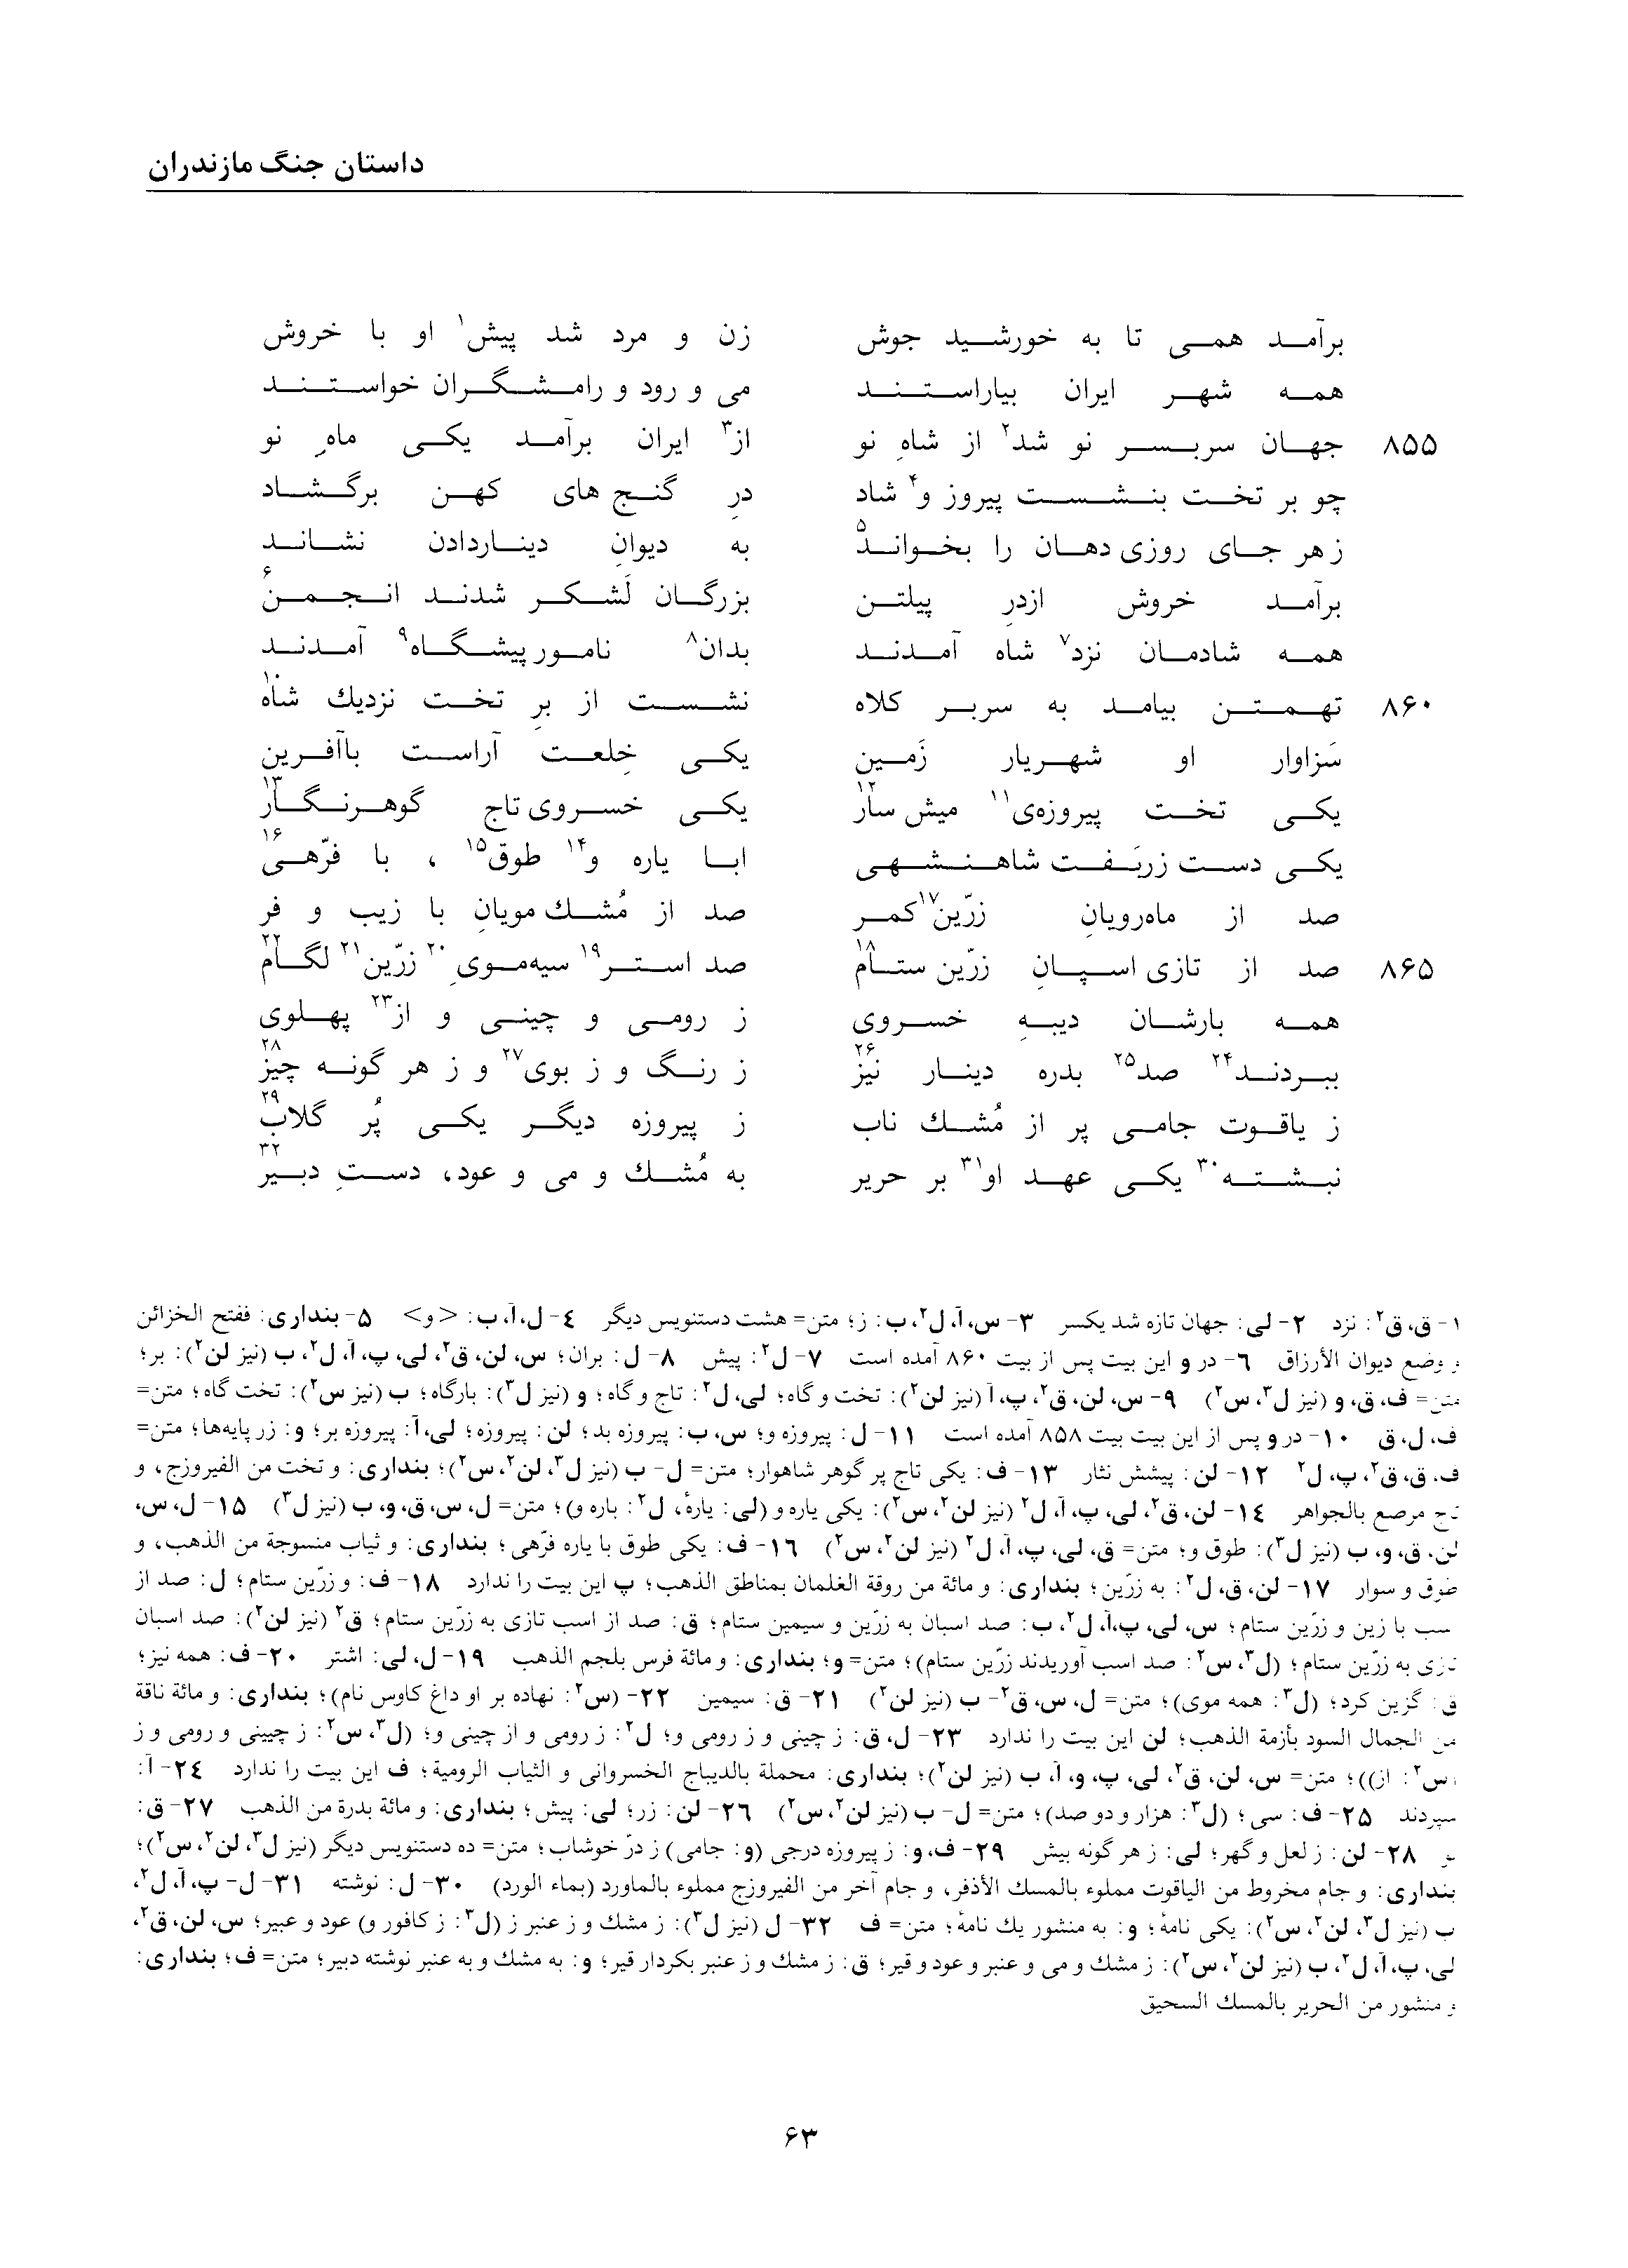 داستان جنگ مازندران
برآمد همی تا به خورشید جوش زن و مرد شد پیش۱ او با خروش
همه شهر ایران بیاراستند می و رود و رامشگران خواستند
۸۵۵ جهان سربسر نو شد۲ از شاهِ نو از۳ ایران برآمد یکی ماهِ نو
چو بر تخت بنشست پیروز و۴ شاد درِ گنج های کهن برگشاد
ز هر جای روزی دهان را بخواند۵ به دیوانِ دیناردادن نشاند
برآمد خروش ازدرِ پیلتن بزرگان لَشکر شدند انجمن۶
همه شادمان نزد۷ شاه آمدند بدان۸ نامور پیشگاه۹ آمدند
۸۶۰ تهمتن بیامد به سربر کلاه نشست از برِ تخت نزدیك شاه۱۰
سَزاوار او شهریار زَمین یکی خِلعت آراست باآفرین
یکی تخت پیروزه‌ی۱۱ میش سار۱۲ یکی خسروی تاج گوهرنگار۱۳
یکی دست زربَفت شاهنشهی ابا یاره و۱۴ طوق۱۵ ، با فرّهی۱۶
صد از ماه‌رویانِ زرّین۱۷ کمر صد از مُشك مویانِ با زیب و فر
۸۶۵ صد از تازی اسپانِ زرّین ستام۱۸ صد استر۱۹ سیه‌مویِ۲۰ زرّین۲۱ لگام۲۲
همه بارشان دیبهِ خسروی ز رومی و چینی و از۲۳ پهلوی
ببردند۲۴ صد۲۵ بدره دینار نیز۲۶ ز رنگ و ز بوی۲۷ و ز هر گونه چیز۲۸
ز یاقوت جامی پر از مُشك ناب ز پیروزه دیگر یکی پُر گلاب۲۹
نبشته۳۰ یکی عهد او۳۱ بر حریر به مُشك و می و عود، دستِ دبیر۳۲
۱- ق، ق۲: نزد ۲- لی: جهان تازه شد یکسر ۳- س، آ، ل۲، ب: ز؛ متن= هشت دستنویس دیگر ۴- ل، آ، ب: <و> ۵- بنداری: ففتح الخزائن
و وضع دیوان الأرزاق ۶- در و این بیت پس از بیت ۸۶۰ آمده است ۷- ل۲: پیش ۸- ل: بران؛ س، لن، ق۲، لی، پ، آ، ل۲، ب (نیز لن۲): بر؛
متن= ف، ق، و (نیز ل۳، س۲) ۹- س، لن، ق۲، پ، آ (نیز لن۲): تخت و گاه؛ لی، ل۲: تاج و گاه؛ و (نیز ل۳): بارگاه؛ ب (نیز س۲): تخت گاه؛ متن=
ف، ل، ق ۱۰- در و پس از این بیت بیت ۸۵۸ آمده است ۱۱- ل: پیروزه و؛ س، ب: پیروزه بد؛ لن: پیروزه؛ لی، آ: پیروزه بر؛ و: زر پایه‌ها؛ متن=
ف، ق، ق۲، پ، ل۲ ۱۲- لن: پیشش نثار ۱۳- ف: یکی تاج پر گوهر شاهوار؛ متن= ل- ب (نیز ل۳، لن۲، س۲)؛ بنداری: و تخت من الفیروزج، و
تاج مرصع بالجواهر ۱۴- لن، ق۲، لی، پ، آ، ل۲ (نیز لن۲، س۲): یکی یاره و (لی: یارهٔ، ل۲: باره و)؛ متن= ل، س، ق، و، ب (نیز ل۳) ۱۵- ل، س،
لن، ق، و، ب (نیز ل۳): طوق و؛ متن= ق، لی، پ، آ، ل۲ (نیز لن۲، س۲) ۱۶- ف: یکی طوق با یاره فرّهی؛ بنداری: و ثیاب منسوجة من الذهب، و
طوق و سوار ۱۷- لن، ق، ل۲: به زرّین؛ بنداری: و مائة من روقة الغلمان بمناطق الذهب؛ پ این بیت را ندارد ۱۸- ف: و زرّین ستام؛ ل: صد از
سب با زین و زرّین ستام؛ س، لی، پ، آ، ل۲، ب: صد اسبان به زرّین و سیمین ستام؛ ق: صد از اسب تازی به زرّین ستام؛ ق۲ (نیز لن۲): صد اسبان
تازی به زرّین ستام؛ (ل۳، س۲: صد اسب آوریدند زرّین ستام)؛ متن= و؛ بنداری: و مائة فرس بلجم الذهب ۱۹- ل، لی: اشتر ۲۰- ف: همه نیز؛
ق: گزین کرد؛ (ل۳: همه موی)؛ متن= ل، س، ق۲- ب (نیز لن۲) ۲۱- ق: سیمین ۲۲- (س۲: نهاده بر او داغ کاوس نام)؛ بنداری: و مائة ناقة
من الجمال السود بأزمة الذهب؛ لن این بیت را ندارد ۲۳- ل، ق: ز چینی و ز رومی و؛ ل۲: ز رومی و از چینی و؛ (ل۳، س۲: ز چینی و رومی و ز
(س۲: از))؛ متن= س، لن، ق۲، لی، پ، و، آ، ب (نیز لن۲)؛ بنداری: محملة بالدیباج الخسروانی و الثیاب الرومیة؛ ف این بیت را ندارد ۲۴- آ:
سپردند ۲۵- ف: سی؛ (ل۳: هزار و دو صد)؛ متن= ل- ب (نیز لن۲، س۲) ۲۶- لن: زر؛ لی: پیش؛ بنداری: و مائة بدرة من الذهب ۲۷- ق:
۲۸- لن: ز لعل و گهر؛ لی: ز هر گونه بیش ۲۹- ف، و: ز پیروزه درجی (و: جامی) ز درّ خوشاب؛ متن= ده دستنویس دیگر (نیز ل۳، لن۲، س۲)؛
بنداری: و جام مخروط من الیاقوت مملوء بالمسك الأذفر، و جام آخر من الفیروزج مملوء بالماورد (بماء الورد) ۳۰- ل: نوشته ۳۱- ل- پ، آ، ل۲،
ب (نیز ل۳، لن۲، س۲): یکی نامهٔ؛ و: به منشور یك نامهٔ؛ متن= ف ۳۲- ل (نیز ل۳): ز مشك و ز عنبر ز (ل۳: ز کافور و) عود و عبیر؛ س، لن، ق۲،
لی، پ، آ، ل۲، ب (نیز لن۲، س۲): ز مشك و می و عنبر و عود و قیر؛ ق: ز مشك و ز عنبر بکردار قیر؛ و: به مشك و به عنبر نوشته دبیر؛ متن= ف؛ بنداری:
و منشور من الحریر بالمسك السحیق
۶۳